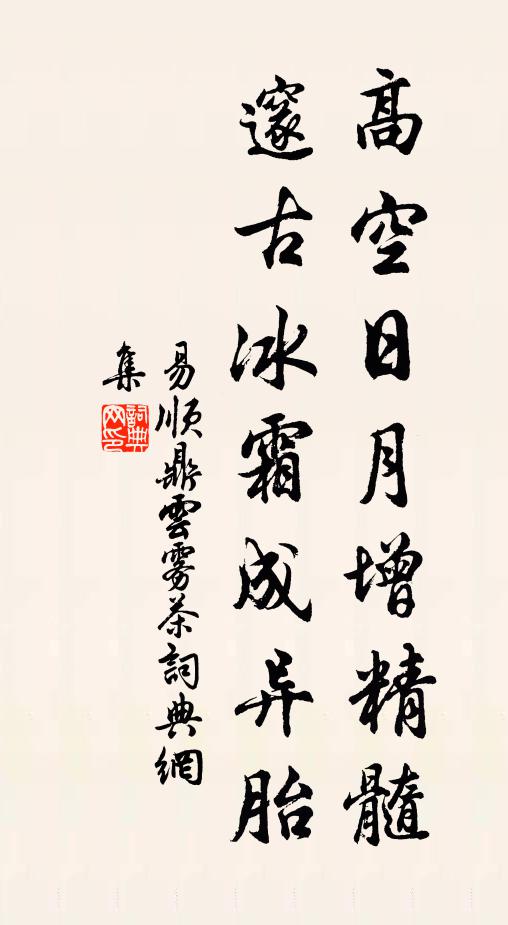 高空日月增精髓
邃古冰霜成异胎
易順鼎雲霧茶詞典網
集
詞典网印